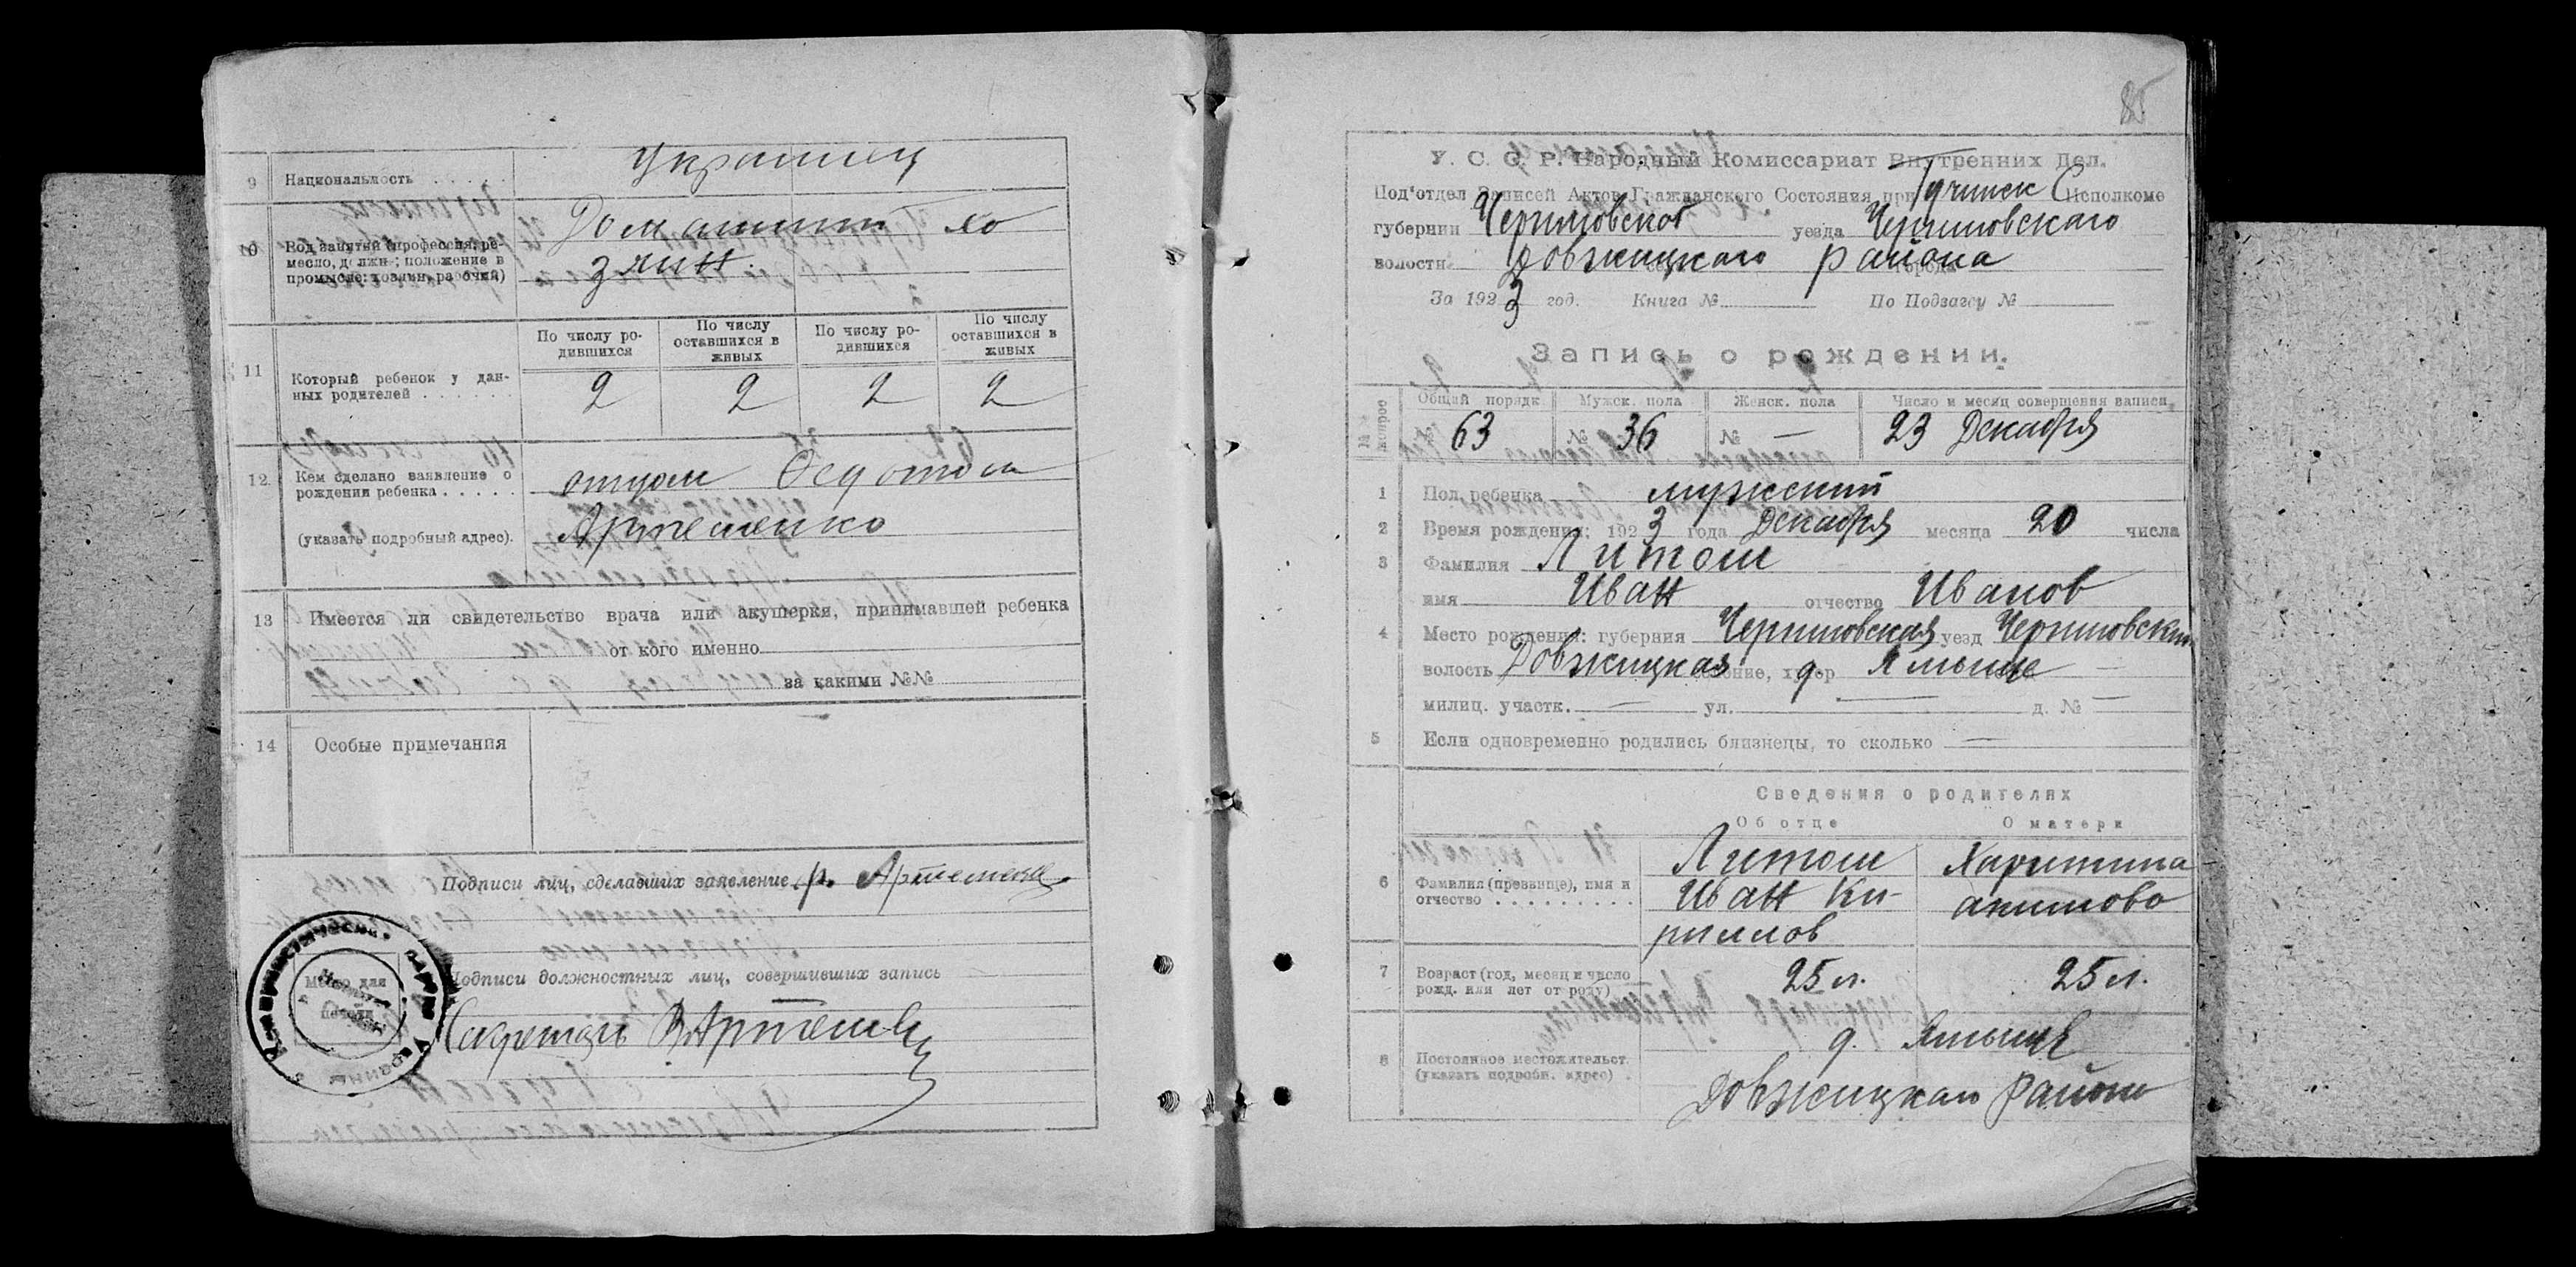 9 Национальность . . . . . Украинец
10 Род занятий (профессия, ре-
месло, должн.; положение в
промысле: хозяин, рабочий)
Домашний хо
зяин.
11 Который ребенок у дан-
ных родителей . . . . . . .
По числу ро-
дившихся
По числу
оставшихся в
живых
По числу ро-
дившихся
По числу
оставшихся в
живых
2 2 2 2
12 Кем сделано заявление о
рождении ребенка . . . . .
(указать подробный адрес).
отцом Федотом
Артеменко
13 Имеется ли свидетельство врача или акушерки, принимавшей ребенка
от кого именно
за какими №№
14 Особые примечания
Подписи лиц, сделавших заявление Артеменко
Место для
печати
Подписи должностных лиц, совершивших запись
Секретарь
85
У. С. С. Р. Народный Комиссариат Внутренних Дел.
Под'отдел Записей Актов Гражданского Состояния при С Исполкоме
губернии Черниговской уезда Черниговскаго
волости Довжицкаго района
За 1923 год. Книга № По Подзагсу №
Запись о рождении.
№ вопрос
Общий порядк. Мужск. пола Женск. пола Число и месяц совершения записи
№ 63 № 36 № — 23 Декабря
1 Пол ребенка мужский
2 Время рождения: 1923 года Декабря месяца 20 числа
3 Фамилия Литош
имя Иван отчество Иванов
4 Место рождения: губерния Черниговская уезд Черниговский
волость Довжицкая селение, хутор д. Ямыще —
милиц. участк. — ул. — д. № —
5 Если одновременно родились близнецы, то сколько —
Сведения о родителях
Об отце О матери
6 Фамилия (прозвище), имя и
отчество . . . . . . . . .
Литош
Иван Ки-
риллов
Харитина
акимова
7 Возраст (год, месяц и число
рожд. или лет от роду)
25 л. 25 л.
8 Постоянное местожительст.
(указать подробн. адрес) .
д. Ямыще
Довжицкаго района